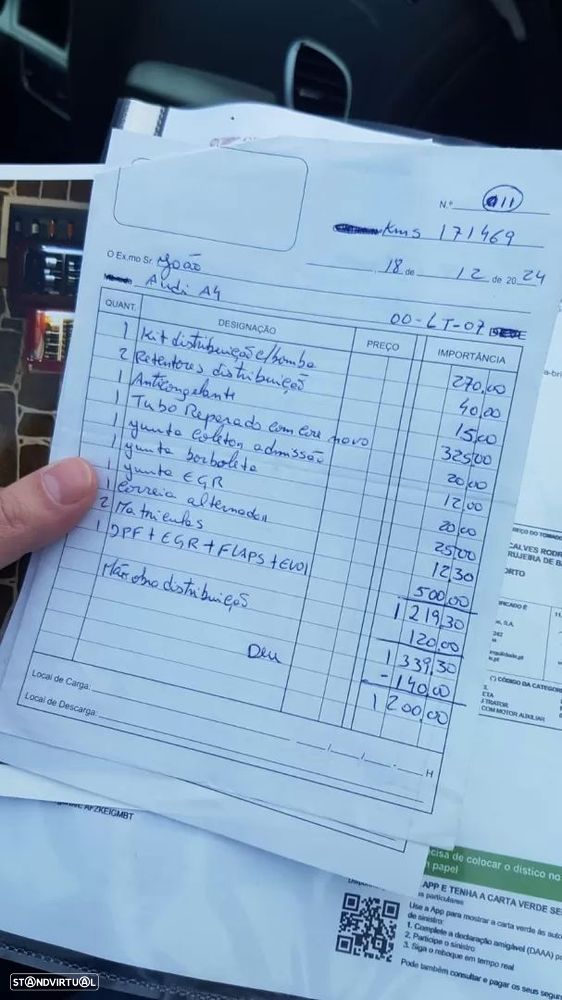 N.º 011
Kms 171469
18 de 12 de 2024
O Ex.mo Sr. João
Audi A4
00-LT-07
QUANT. DESIGNAÇÃO PREÇO IMPORTÂNCIA
1 Kit distribuição c/bomba 270,00
2 Retentores distribuição 40,00
1 Anticongelante 15,00
1 Tubo Reparado com core novo 325,00
1 junta coletor admissão 20,00
1 junta borboleta 12,00
1 junta EGR 20,00
1 Correia alternador 25,00
2 Matriculas 12,30
1 DPF + EGR + FLAPS + EVO1 500,00
1 219,30
Mão obra distribuição 120,00
1 339,30
Deu - 140,00
1 200,00
Local de Carga:
Local de Descarga:
H
CALVES RODR
RUJEIRA DE B
ORTO
, S.A.
242
(*) CÓDIGO DA CATEGOR
ETA
TRATOR
COM MOTOR AUXILIAR
AFZKEIGMBT
cisa de colocar o dístico no
papel
APP E TENHA A CARTA VERDE SE
s particulares
Use a App para mostrar a carta verde às auto
de sinistro:
1. Complete a declaração amigável (DAAA) p
2. Participe o sinistro
3. Siga o reboque em tempo real
Pode também consultar e pagar os seus segu
STANDVIRTUAL